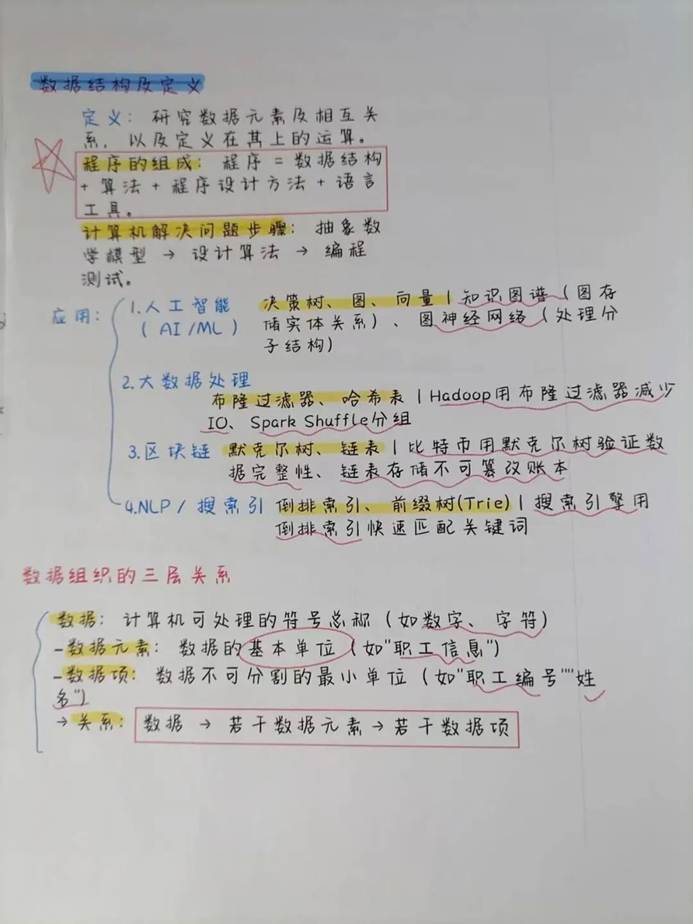 数据结构及定义
定义：研究数据元素及相互关
系，以及定义在其上的运算。
程序的组成：程序 = 数据结构
+ 算法 + 程序设计方法 + 语言
工具。
计算机解决问题步骤：抽象数
学模型 → 设计算法 → 编程
测试。
应用：
1.人工智能 决策树、图、向量 | 知识图谱（图存
（AI/ML）储实体关系）、图神经网络（处理分
子结构）
2.大数据处理
布隆过滤器、哈希表 | Hadoop用布隆过滤器减少
IO、Spark Shuffle分组
3.区块链 默克尔树、链表 | 比特币用默克尔树验证数
据完整性、链表存储不可篡改账本
4.NLP / 搜索引 倒排索引、前缀树(Trie) | 搜索引擎用
倒排索引快速匹配关键词
数据组织的三层关系
数据：计算机可处理的符号总称（如数字、字符）
-数据元素：数据的基本单位（如"职工信息"）
-数据项：数据不可分割的最小单位（如"职工编号""姓
名"）
→ 关系：数据 → 若干数据元素 → 若干数据项